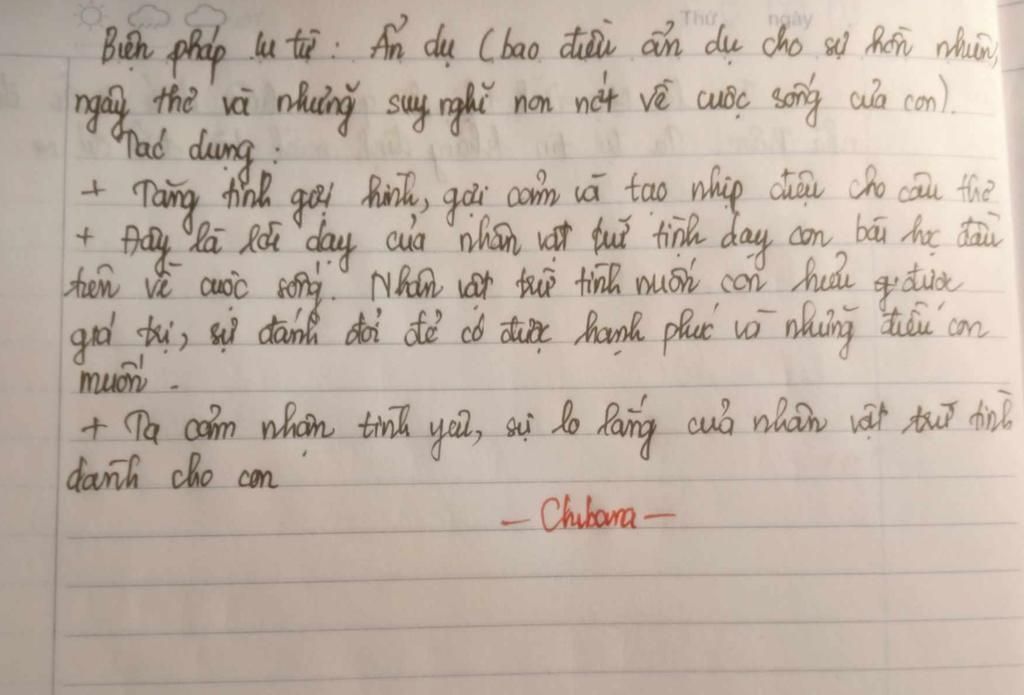 Thứ ngày
Biện pháp tu từ: Ẩn dụ (bao điều ẩn dụ cho sự hồn nhiên,
ngây thơ và những suy nghĩ non nớt về cuộc sống của con).
Tác dụng:
+ Tăng tính gợi hình, gợi cảm và tạo nhịp điệu cho câu thơ
+ Đây là lời dạy của nhân vật trữ tình dạy con bài học đầu
tiên về cuộc sống. Nhân vật trữ tình muốn con hiểu được
giá trị, sự đánh đổi để có được hạnh phúc và những điều con
muốn.
+ Ta cảm nhận tình yêu, sự lo lắng của nhân vật trữ tình
dành cho con
- Chubara -